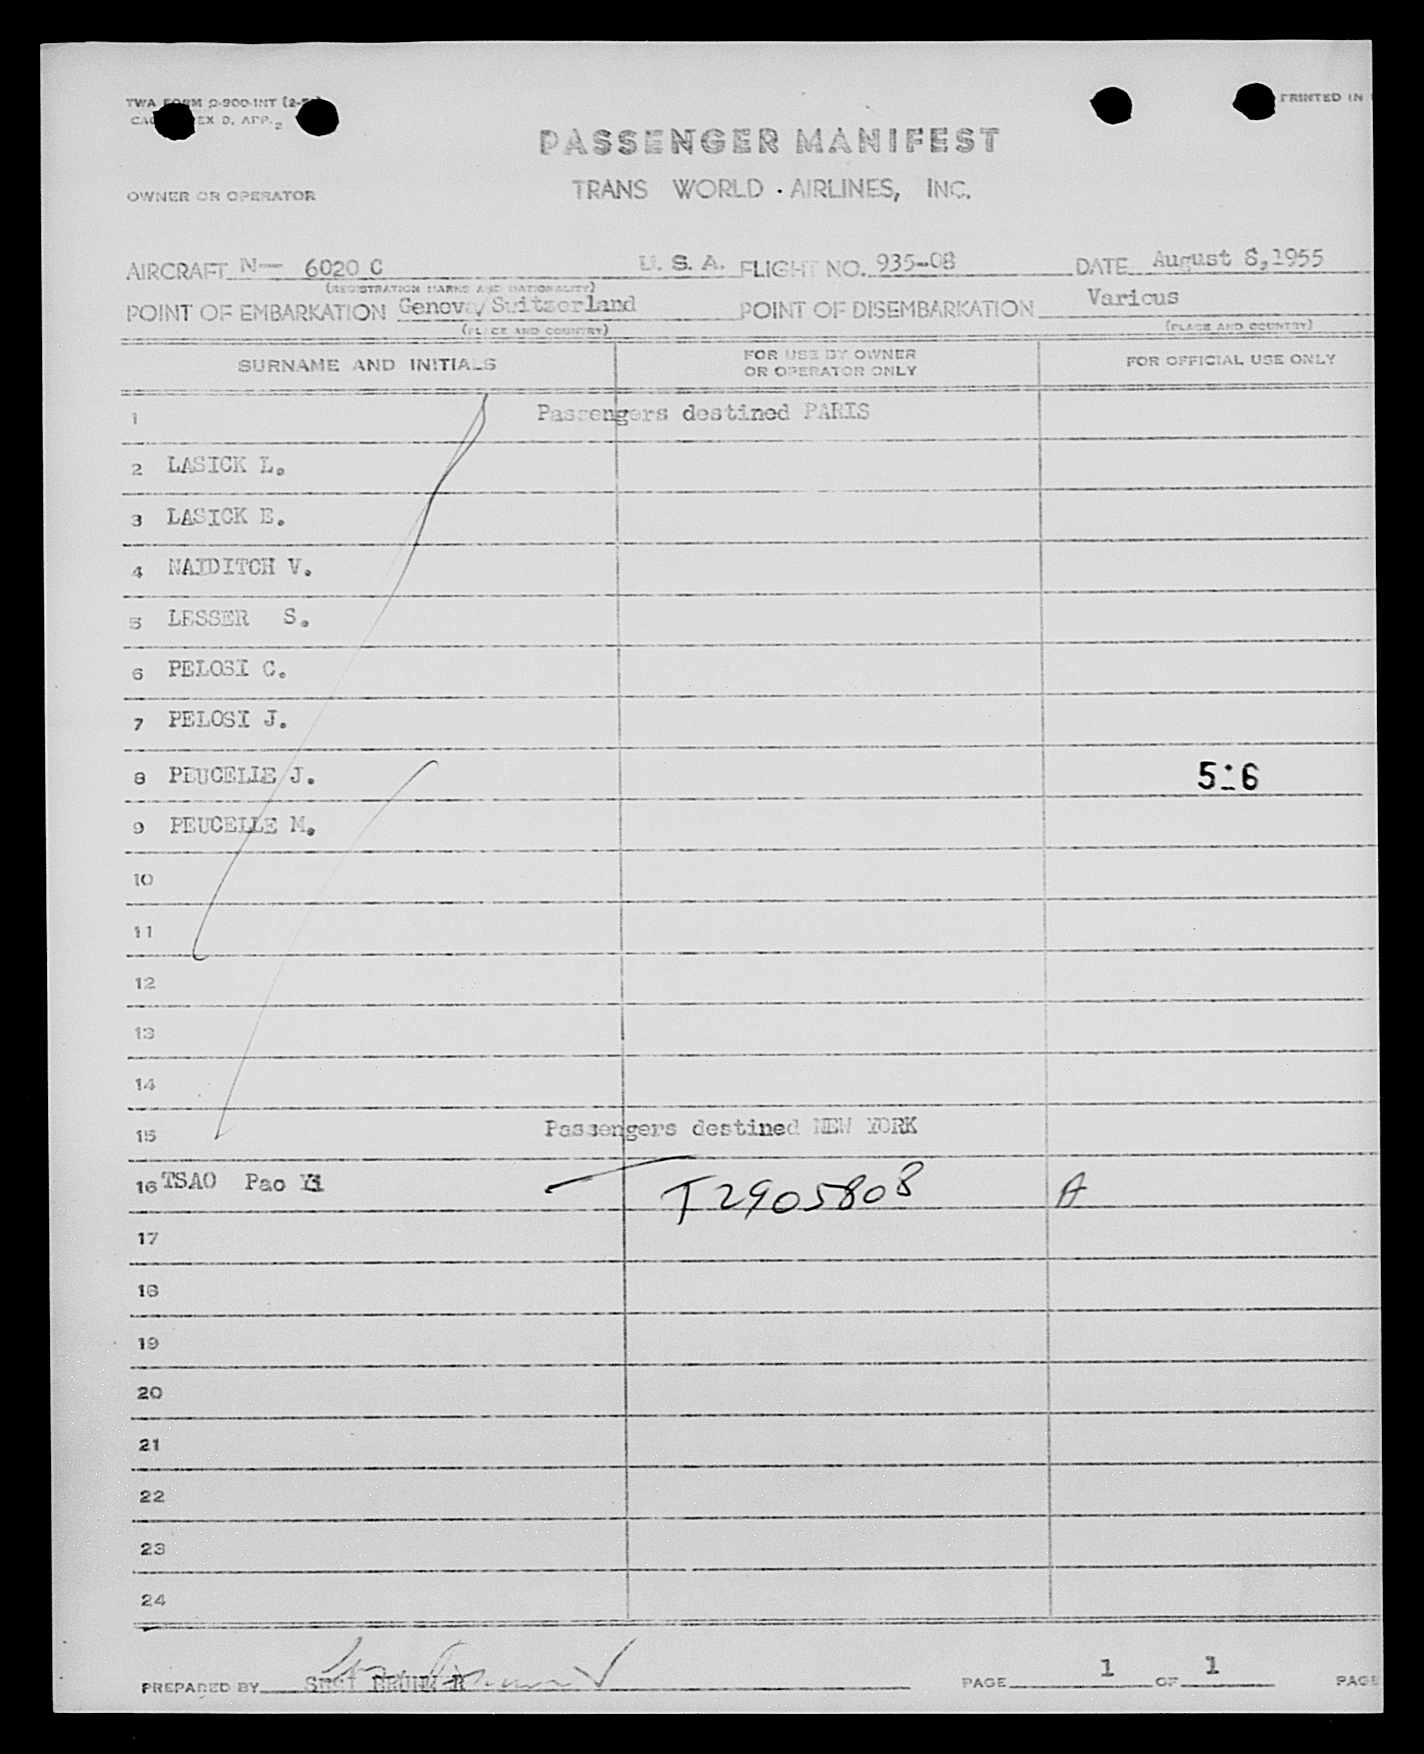 TWA FORM 2-900-INT
PRINTED IN
EX D. APP. 2
PASSENGER MANIFEST
TRANS WORLD AIRLINES, INC.
OWNER OR OPERATOR
AIRCRAFT N— 6020 C U. S. A. FLIGHT NO. 935-08 DATE August 8, 1955
(REGISTRATION MARKS AND NATIONALITY)
POINT OF EMBARKATION Geneva/Switzerland POINT OF DISEMBARKATION Various
(PLACE AND COUNTRY) (PLACE AND COUNTRY)
SURNAME AND INITIALS FOR USE BY OWNER OR OPERATOR ONLY FOR OFFICIAL USE ONLY
1 Passengers destined PARIS
2 LASICK L.
3 LASICK E.
4 NAIDITCH V.
5 LESSER S.
6 PELOSI C.
7 PELOSI J.
8 PEUCELLE J. 516
9 PEUCELLE M.
10
11
12
13
14
15 Passengers destined NEW YORK
16 TSAO Pao T2905808 A
17
18
19
20
21
22
23
24
PREPARED BY PAGE 1 OF 1 PAGE